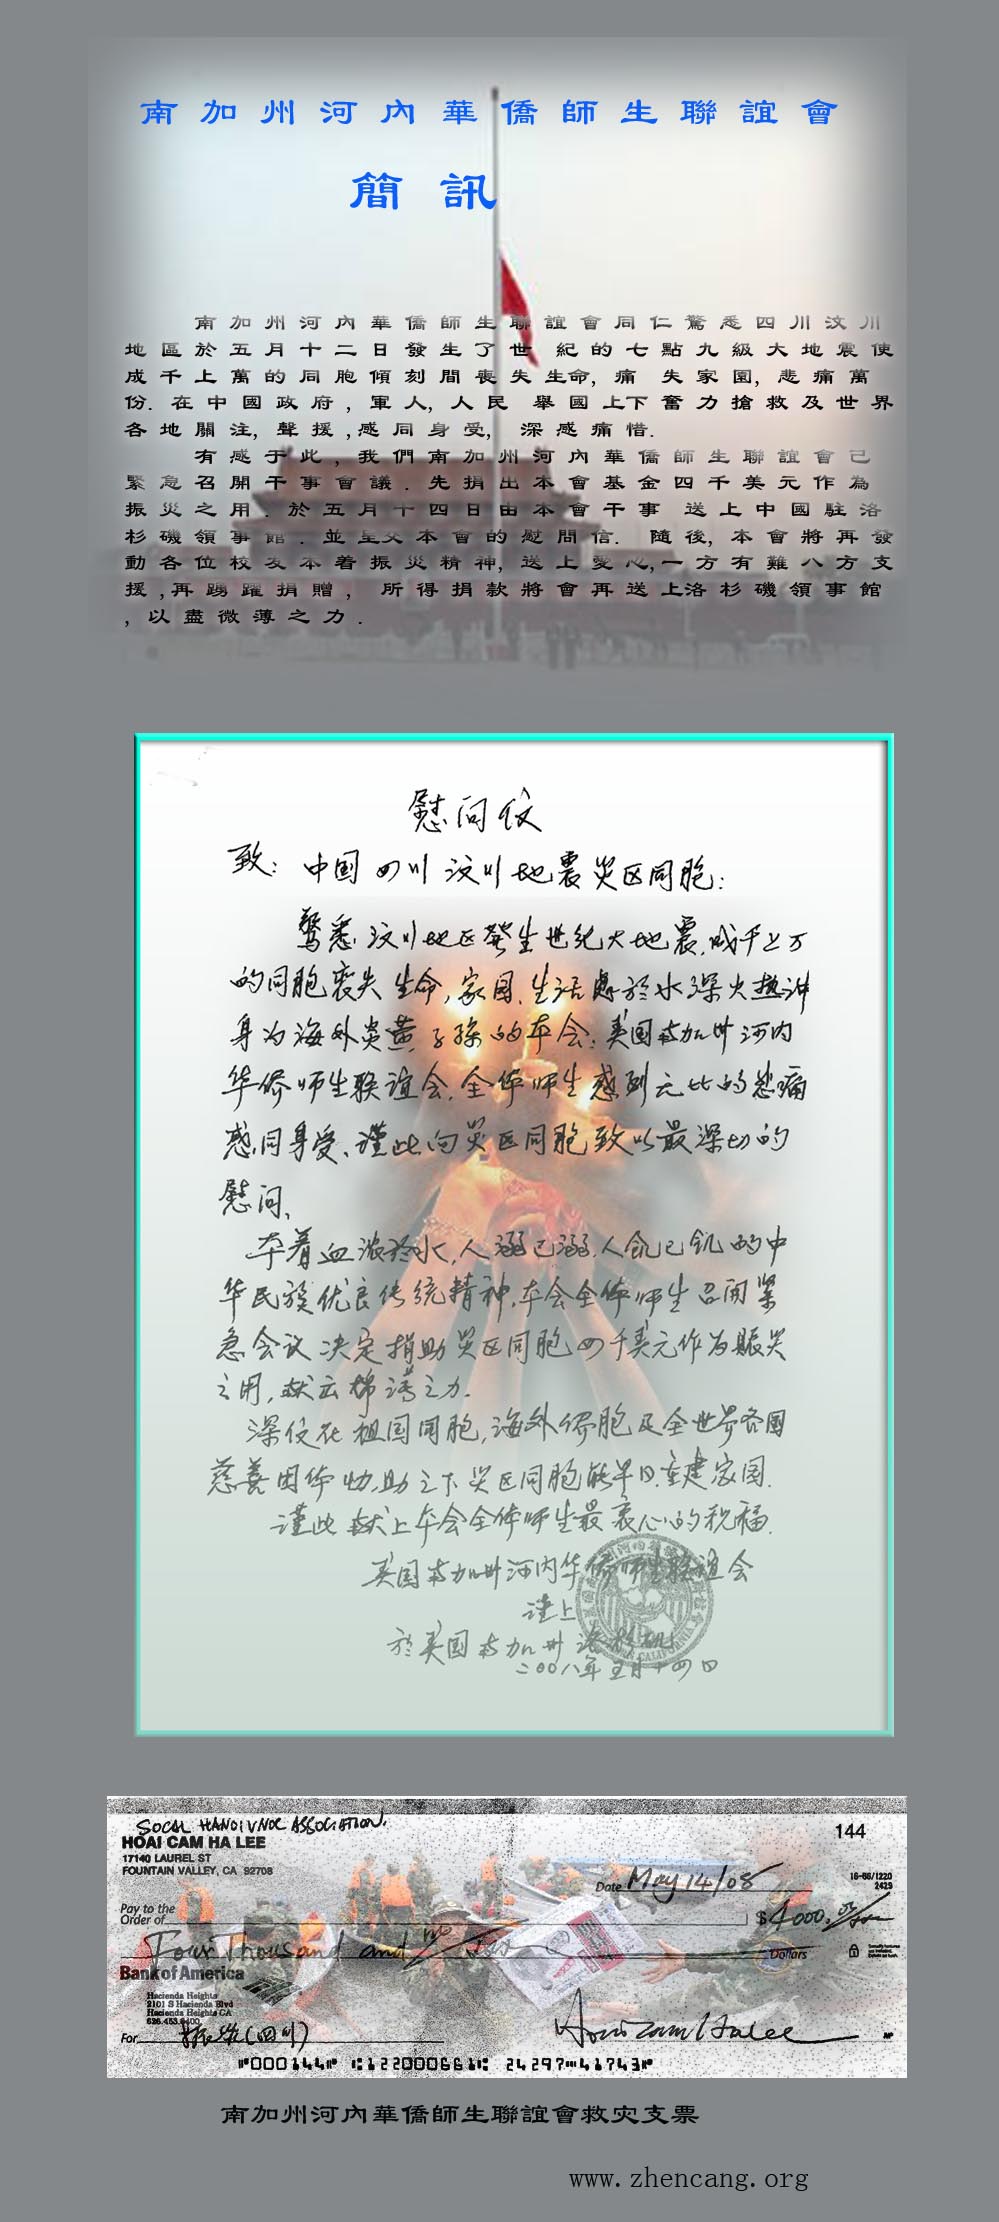 南加州河內華僑師生聯誼會
簡訊
南加州河內華僑師生聯誼會同仁驚悉四川汶川
地區於五月十二日發生了世 紀的七點九級大地震使
成千上萬的同胞傾刻間喪失生命, 痛 失家園, 悲痛萬
份. 在中國政府 , 軍人, 人民 舉國上下奮力搶救及世界
各地關注, 聲援 , 感同身受, 深感痛惜.
有感于此 , 我們南加州河內華僑師生聯誼會已
緊急召開干事會議 . 先捐出本會基金四千美元作為
振災之用 . 於五月十四日由本會干事 送上中國駐洛
杉磯領事館 . 並呈交本會的慰問信. 隨後, 本會將再發
動各位校友本着振災精神, 送上愛心, 一方有難八方支
援 , 再踴躍捐贈 , 所得捐款將會再送上洛杉磯領事館
, 以盡微薄之力 .
慰问信
致: 中国四川汶川地震災区同胞:
驚悉汶川地区發生世纪大地震,成千上万
的同胞喪失生命,家园、生活處於水深火热冲
身为海外炎黄子孫的本会:美国南加州河内
华侨师生联谊会,全体师生感到无比的悲痛
感同身受、謹此向災区同胞致以最深切的
慰问、
本着血浓於水,人溺己溺,人飢己飢的中
华民族优良传统精神,本会全体师生召開紧
急会议决定捐助災区同胞四千美元作为賑災
之用,献出棉薄之力.
深信在祖国同胞,海外侨胞及全世界各国
慈善团体协助之下災区同胞能早日重建家园.
谨此献上本会全体师生最衷心的祝福.
美国南加州河内华侨师生联谊会
谨上
於美国南加州洛杉矶
二〇〇八年五月十四日
SOCAL HANOI VNOC ASSOCIATION.
HOAI CAM HA LEE
144
17140 LAUREL ST
FOUNTAIN VALLEY, CA 92708
16-66/1220
2429
Date May 14/08
Pay to the
Order of
$ 4000.
Four Thousand and
Dollars
Bank of America
Hacienda Heights
2101 S Hacienda Blvd
Hacienda Heights CA
626.453.8400
For 振災(四川)
⑈000144⑈ ⑆122000661⑆ 24297⑉41743⑈
南加州河內華僑師生聯誼會救灾支票
www.zhencang.org